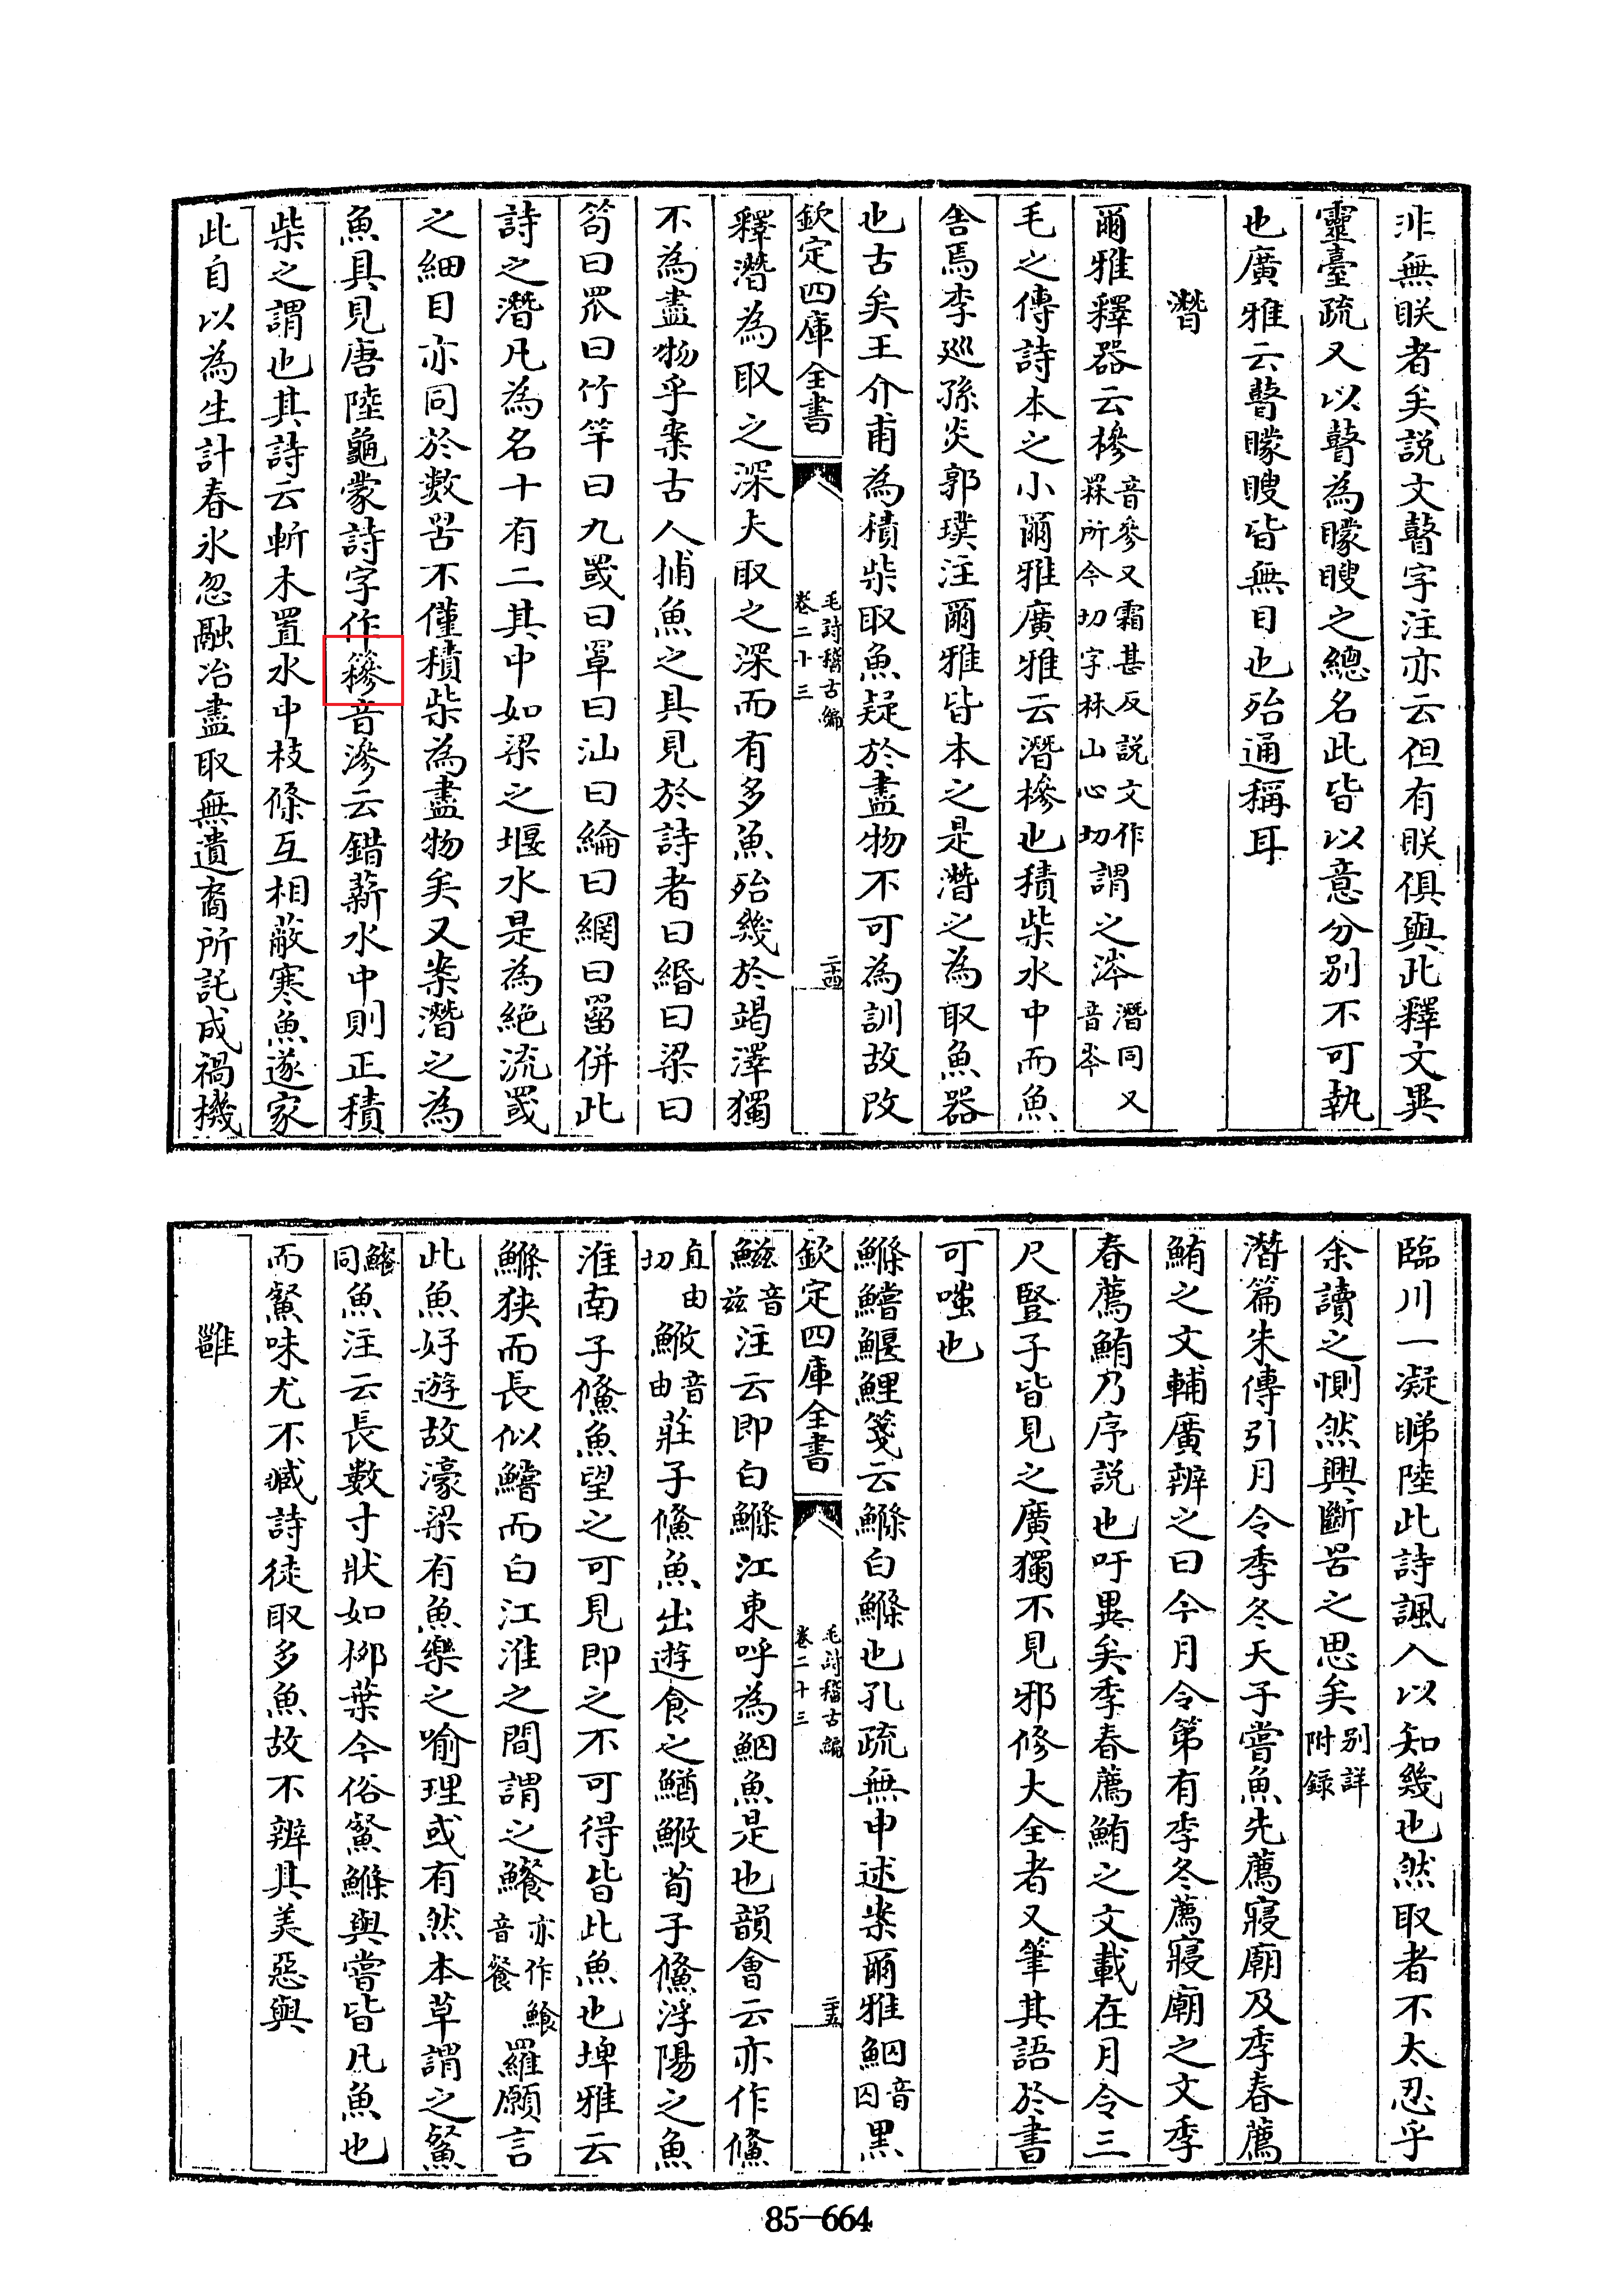 非無眹者矣説文瞽字注亦云但有眹俱與此釋文異
靈臺疏又以瞽為矇瞍之總名此皆以意分别不可執
也廣雅云瞽矇瞍皆無目也殆通稱耳
潛
爾雅釋器云槮音參又霜甚反説文作罧所今切字林山心切謂之涔潛同又音岑
毛之傳詩本之小爾雅廣雅云潛槮也積柴水中而魚
舍焉李巡孫炎郭璞注爾雅皆本之是潛之為取魚器
也古矣王介甫為積柴取魚疑於盡物不可為訓故改
欽定四庫全書
毛詩稽古編
卷二十三
二十四
釋潛為取之深夫取之深而有多魚殆幾於竭澤獨
不為盡物乎案古人捕魚之具見於詩者曰緡曰梁曰
笱曰罛曰竹竿曰九罭曰罩曰汕曰綸曰網曰罶併此
詩之潛凡為名十有二其中如梁之堰水是為絶流罭
之細目亦同於數罟不僅積柴為盡物矣又案潛之為
魚具見唐陸龜蒙詩字作音滲云錯薪水中則正積
柴之謂也其詩云斬木置水中枝條互相蔽寒魚遂家
此自以為生計春氷忽融冶盡取無遺裔所託成禍機
臨川一凝睇陸此詩諷人以知幾也然取者不太忍乎
余讀之惻然興斷罟之思矣别詳附録
潛篇朱傳引月令季冬天子嘗魚先薦寢廟及季春薦
鮪之文輔廣辨之曰今月令第有季冬薦寢廟之文季
春薦鮪乃序説也吁異矣季春薦鮪之文載在月令三
尺豎子皆見之廣獨不見邪修大全者又筆其語於書
可嗤也
鰷鱨鰋鯉箋云鰷白鰷也孔疏無申述案爾雅鮂音囚黑
欽定四庫全書
毛詩稽古編
卷二十三
二十五
鰦音兹注云即白鰷江東呼為鮂魚是也韻會云亦作鯈
直由切䱔音由莊子鯈魚出遊食之鰌䱔荀子鯈浮陽之魚
淮南子鯈魚望之可見即之不可得皆此魚也埤雅云
鰷狹而長似鱨而白江淮之間謂之䱗亦作鱶音餐羅願言
此魚好遊故濠梁有魚樂之喻理或有然本草謂之䱗
同魚注云長數寸狀如桺葉今俗䱗鰷與嘗皆凡魚也
而䱗味尤不臧詩徒取多魚故不辨其美惡與
雝
85-664